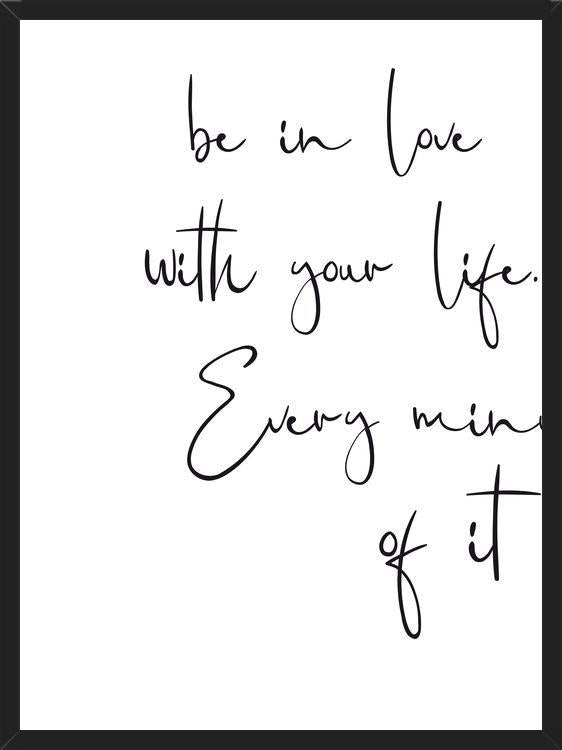 be in love
with your life.
Every
of it